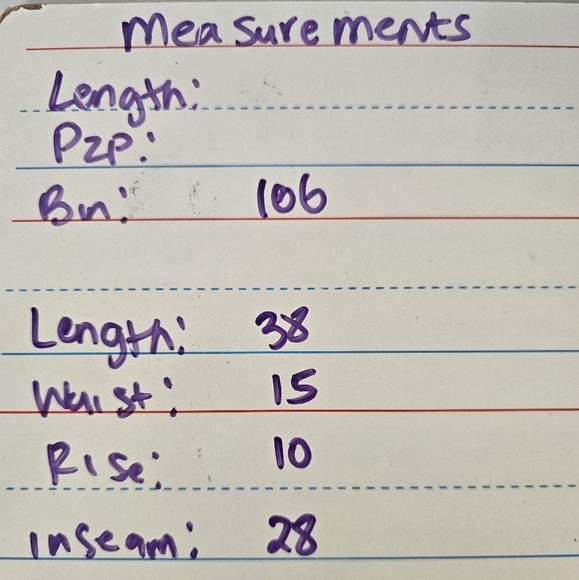 Measurements
Length:
P2P:
Bin: 106
Length: 38
Waist: 15
Rise: 10
Inseam: 28